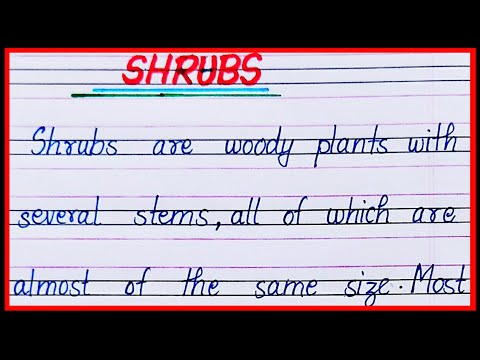 SHRUBS
Shrubs are woody plants with
several stems, all of which are
almost of the same size. Most